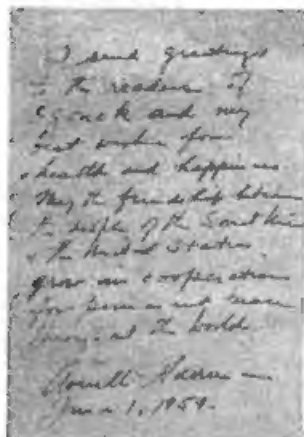 I send greetings
to the readers of
and my
best wishes for
health and happiness
May the friendship between
the people of the Soviet Union
& the United States
grow in cooperation
for peace
throughout the world
Averell Harriman
June 1, 1959.